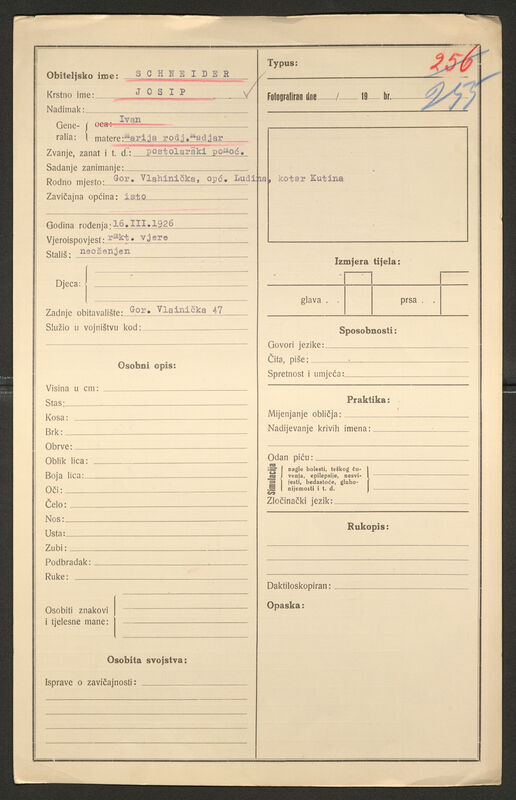 Obiteljsko ime: SCHNEIDER
Krstno ime: JOSIP
Nadimak:
Gene-
ralia:
oca: Ivan
matere: Marija rodj. Madjar
Zvanje, zanat i t. d.: postolarski pomoć.
Sadanje zanimanje:
Rodno mjesto: Gor. Vlahinička, opć. Ludina, kotar Kutina
Zavičajna općina: isto
Godina rođenja: 16.III.1926
Vjeroispovjest: rkt. vjere
Stališ: neoženjen
Djeca:
Zadnje obitavalište: Gor. Vlainička 47
Služio u vojništvu kod:
Osobni opis:
Visina u cm:
Stas:
Kosa:
Brk:
Obrve:
Oblik lica:
Boja lica:
Oči:
Čelo:
Nos:
Usta:
Zubi:
Podbradak:
Ruke:
Osobiti znakovi
i tjelesne mane:
Osobita svojstva:
Isprave o zavičajnosti:
Typus:
256
255
Fotografiran dne / 19 br.
Izmjera tijela:
glava . . prsa . .
Sposobnosti:
Govori jezike:
Čita, piše:
Spretnost i umjeća:
Praktika:
Mijenjanje obličja:
Nadijevanje krivih imena:
Odan piću:
Simulacija
nagle bolesti, teškog ču-
venja, epilepsije, nesvi-
jesti, bedastoće, gluho-
nijemosti i t. d.
Zločinački jezik:
Rukopis:
Daktiloskopiran:
Opaska: